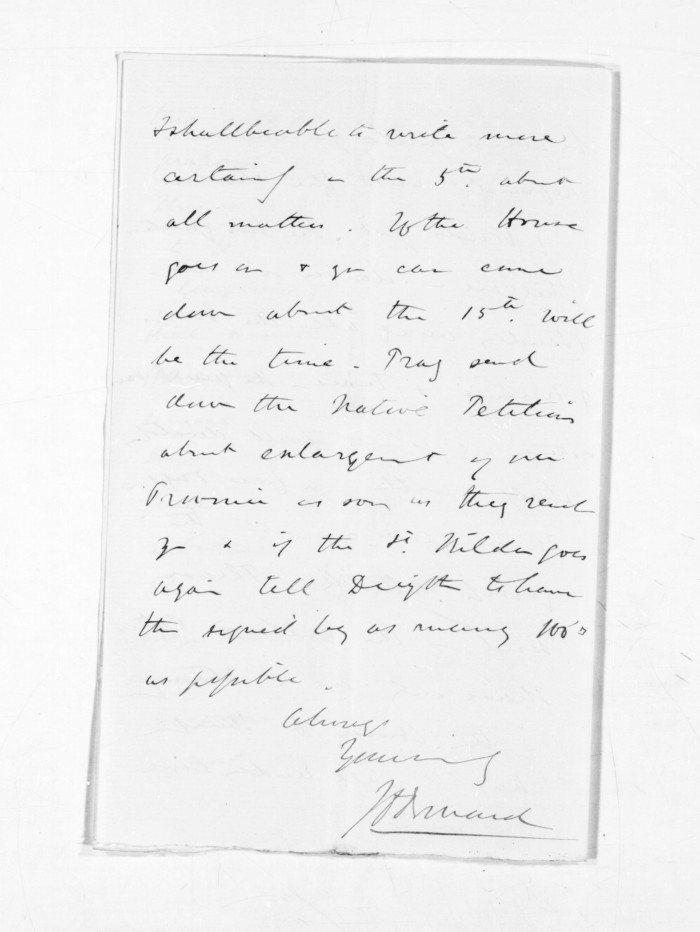 I shall be able to write more
certainly on the 5th. about
all matters. If the House
goes on & you can come
down about the 15th. will
be the time. Pray send
down the Native Petitions
about enlargement of our
Province as soon as they reach
you & if the St. Kilda goes
again tell Deighton to have
them signed by as many
as possible.
Always
Yours